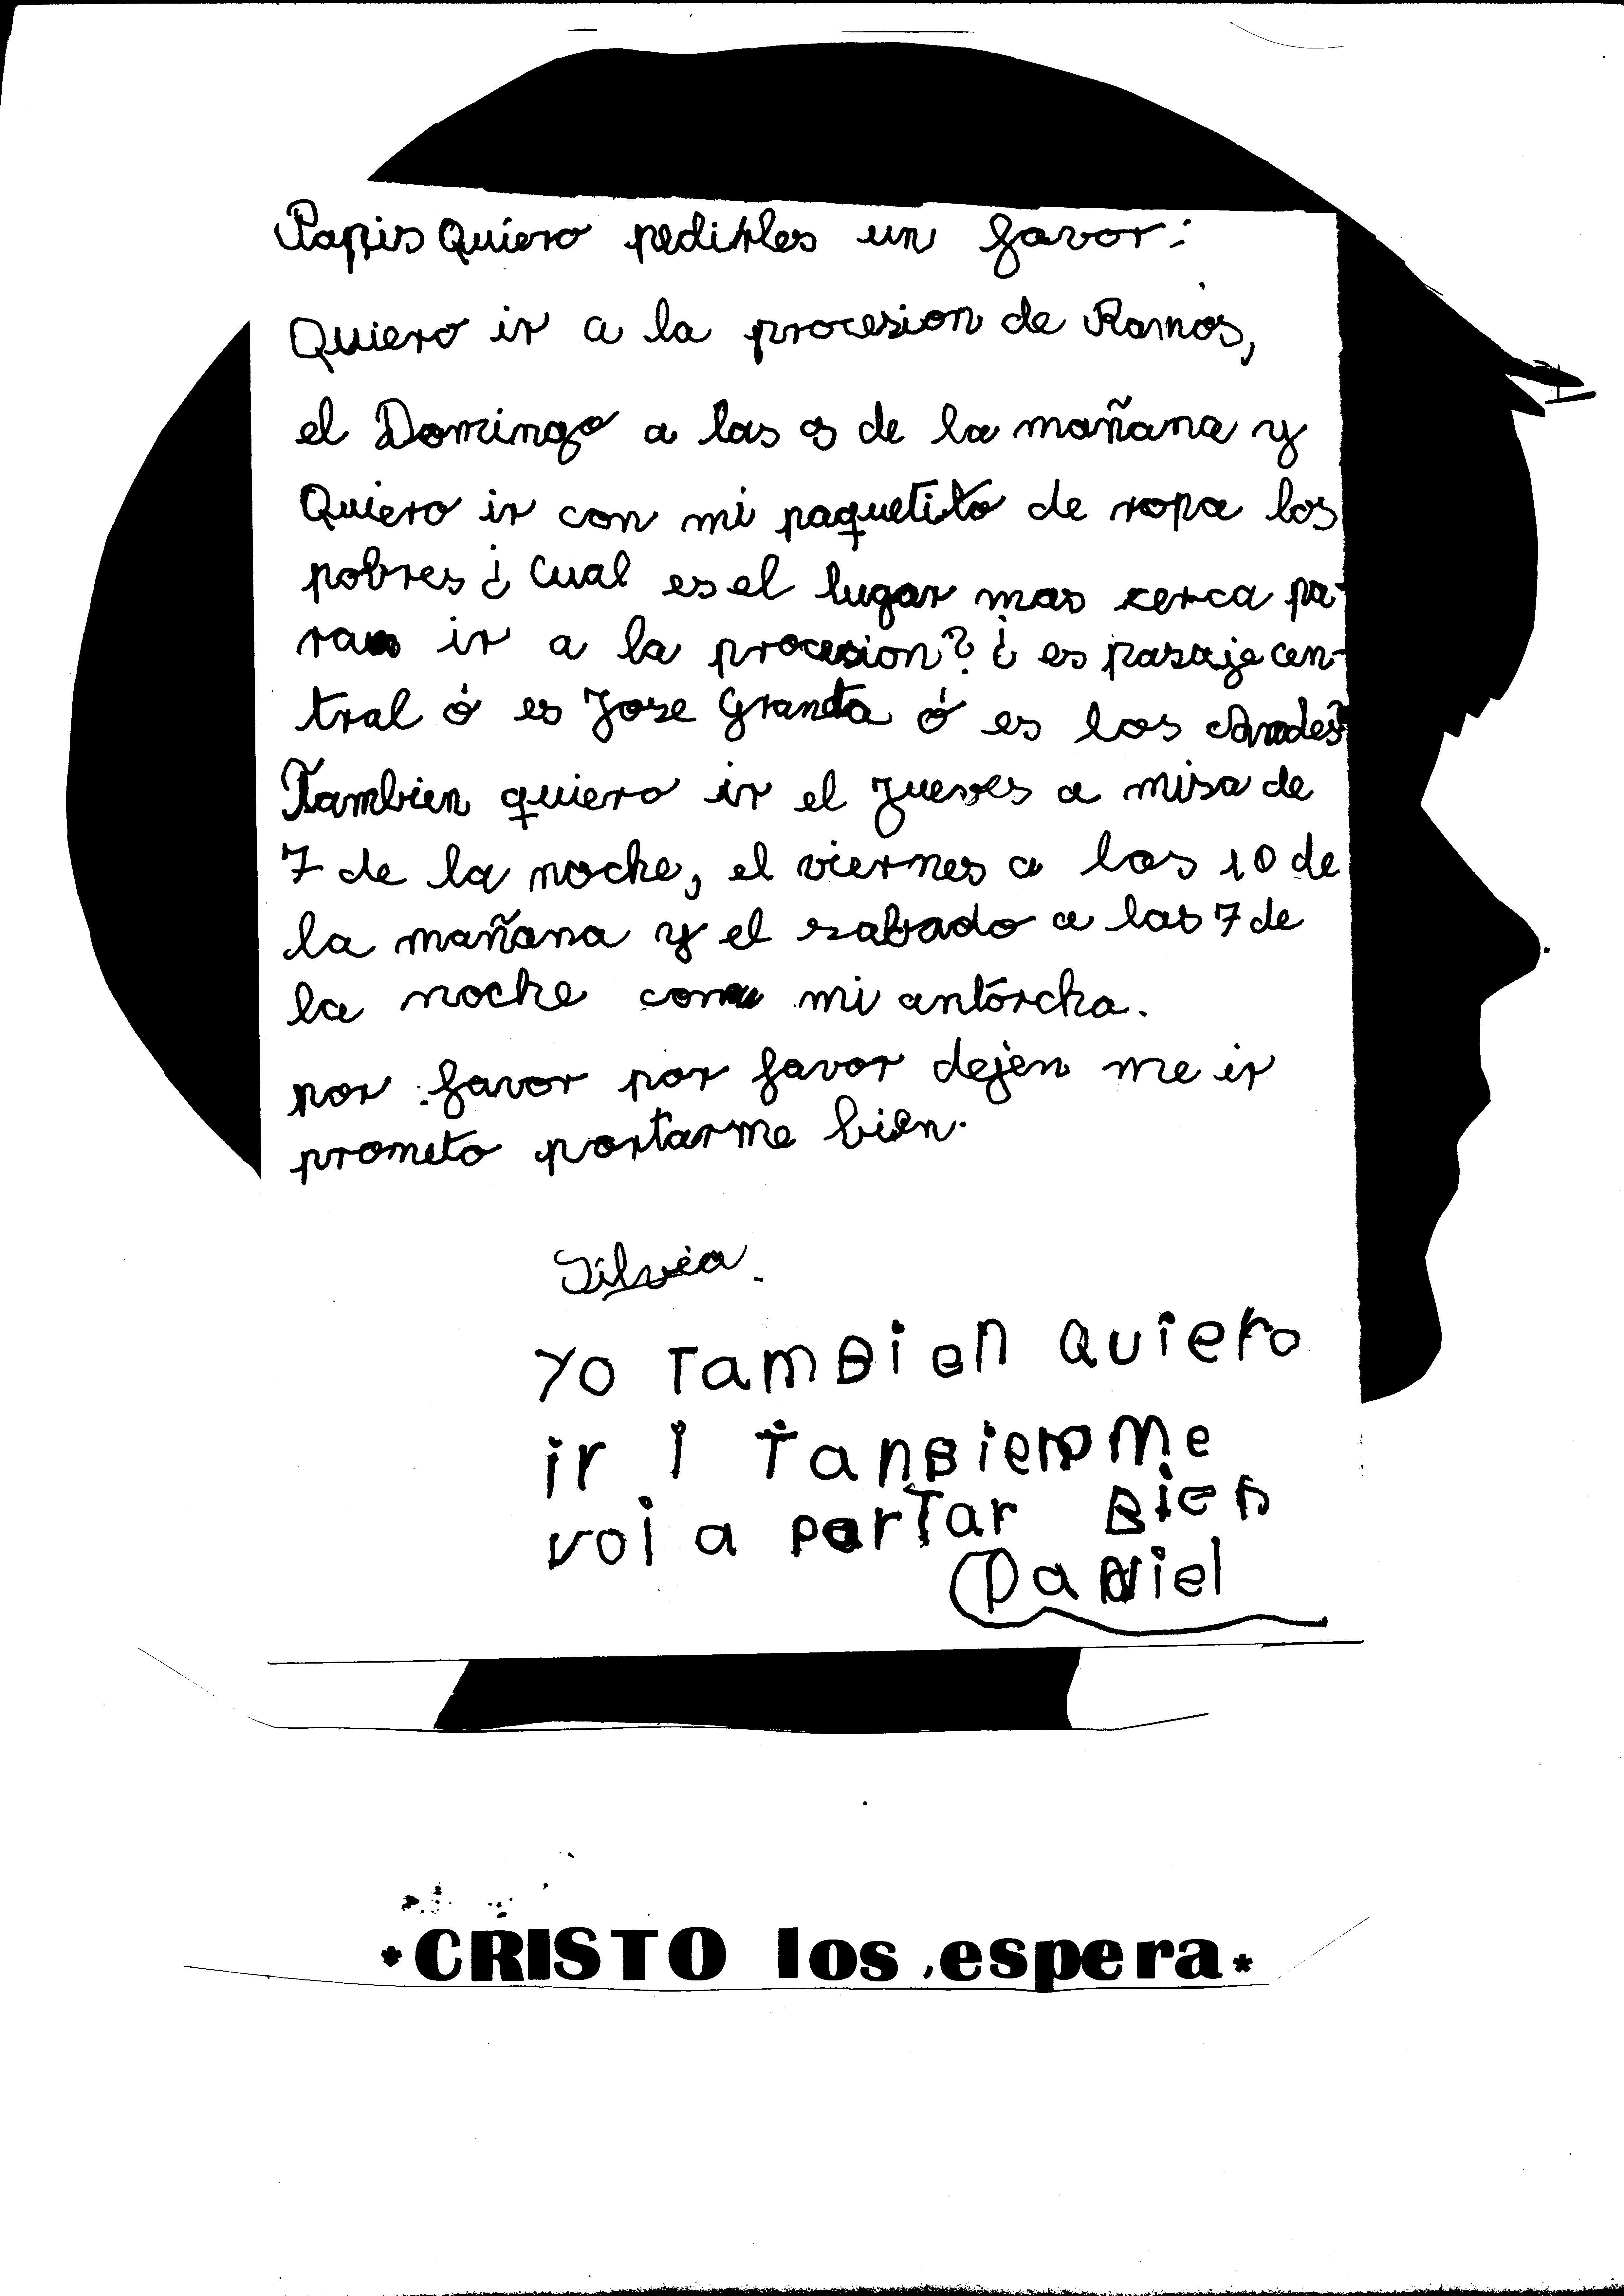 Papis Quiero pedirles un favor:
Quiero ir a la procesion de Ramos,
el Domingo a las 9 de la mañana y
Quiero ir con mi paquetito de ropa los
pobres ¿ Cual es el lugar mas cerca pa-
ra ir a la procesion? ¿ es pasaje cen-
tral ó es Jose Granda ó es los Andes?
Tambien quiero ir el jueves a misa de
7 de la noche, el viernes a las 10 de
la mañana y el sabado a las 7 de
la noche con mi antórcha.
por favor por favor dejen me ir
prometo portarme bien.
Silvia.
YO TamBien Quiero
ir I TanBien Me
voi a porTar Bien
DaNiel
*CRISTO los espera*